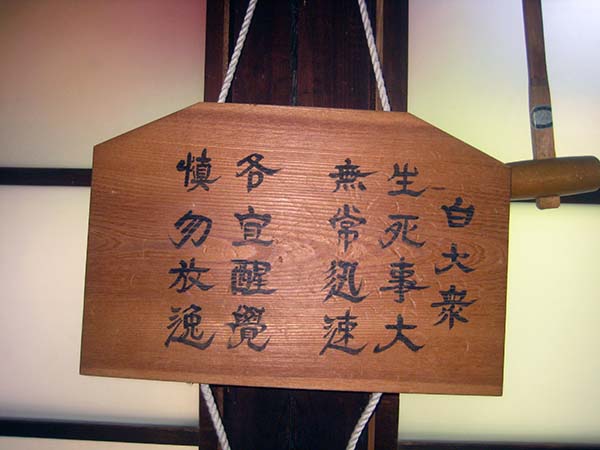 白大衆
生死事大
無常迅速
各宜醒覺
慎勿放逸